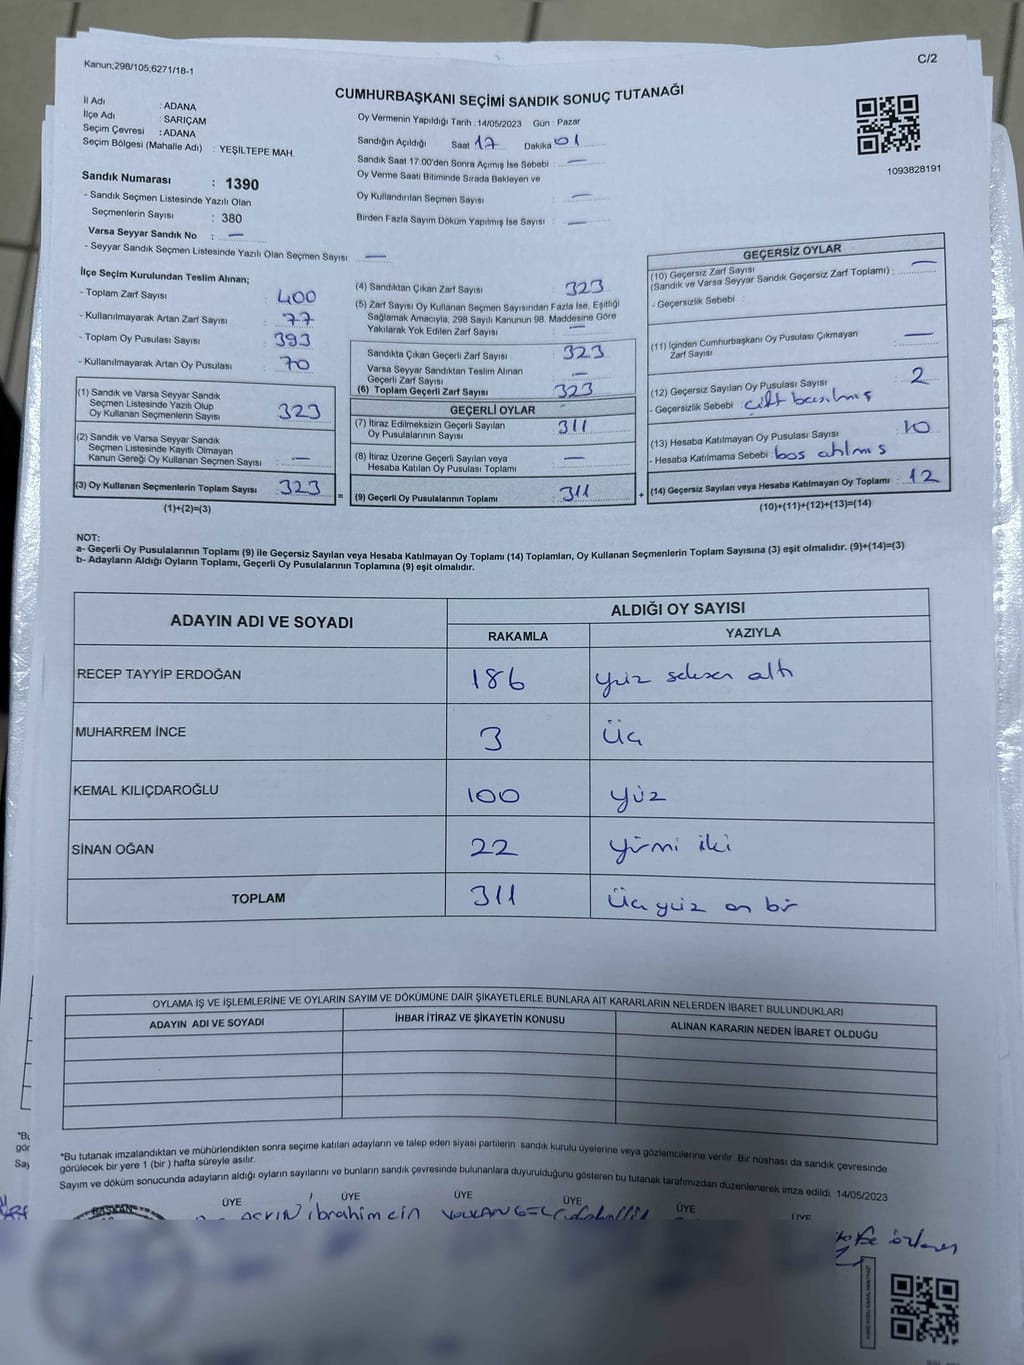 Kanun;298/105,6271/18-1
C/2
CUMHURBAŞKANI SEÇİMİ SANDIK SONUÇ TUTANAĞI
İl Adı : ADANA
İlçe Adı : SARIÇAM
Seçim Çevresi : ADANA
Seçim Bölgesi (Mahalle Adı) : YEŞİLTEPE MAH.
Sandık Numarası : 1390
- Sandık Seçmen Listesinde Yazılı Olan
Seçmenlerin Sayısı : 380
Varsa Seyyar Sandık No : —
- Seyyar Sandık Seçmen Listesinde Yazılı Olan Seçmen Sayısı: —
Oy Vermenin Yapıldığı Tarih :14/05/2023 Gün : Pazar
Sandığın Açıldığı Saat 17 Dakika 01
Sandık Saat 17:00'den Sonra Açımış İse Sebebi : —
Oy Verme Saati Bitiminde Sırada Bekleyen ve
Oy Kullandırılan Seçmen Sayısı : —
Birden Fazla Sayım Döküm Yapılmış İse Sayısı : —
1093828191
İlçe Seçim Kurulundan Teslim Alınan;
- Toplam Zarf Sayısı : 400
- Kullanılmayarak Artan Zarf Sayısı : 77
- Toplam Oy Pusulası Sayısı : 393
- Kullanılmayarak Artan Oy Pusulası : 70
(1) Sandık ve Varsa Seyyar Sandık
Seçmen Listesinde Yazılı Olup
Oy Kullanan Seçmenlerin Sayısı : 323
(2) Sandık ve Varsa Seyyar Sandık
Seçmen Listesinde Kayıtlı Olmayan
Kanun Gereği Oy Kullanan Seçmen Sayısı : —
(3) Oy Kullanan Seçmenlerin Toplam Sayısı : 323
(1)+(2)=(3)
(4) Sandıktan Çıkan Zarf Sayısı : 323
(5) Zarf Sayısı Oy Kullanan Seçmen Sayısından Fazla İse, Eşitliği
Sağlamak Amacıyla; 298 Sayılı Kanunun 98. Maddesine Göre
Yakılarak Yok Edilen Zarf Sayısı : —
Sandıkta Çıkan Geçerli Zarf Sayısı : 323
Varsa Seyyar Sandıktan Teslim Alınan
Geçerli Zarf Sayısı : —
(6) Toplam Geçerli Zarf Sayısı : 323
GEÇERLİ OYLAR
(7) İtiraz Edilmeksizin Geçerli Sayılan
Oy Pusulalarının Sayısı : 311
(8) İtiraz Üzerine Geçerli Sayılan ve
Hesaba Katılan Oy Pusulası Toplamı : —
= (9) Geçerli Oy Pusulalarının Toplamı : 311
GEÇERSİZ OYLAR
(10) Geçersiz Zarf Sayısı
(Sandık ve Varsa Seyyar Sandık Geçersiz Zarf Toplamı) : —
- Geçersizlik Sebebi :
(11) İçinden Cumhurbaşkanı Oy Pusulası Çıkmayan
Zarf Sayısı : —
(12) Geçersiz Sayılan Oy Pusulası Sayısı : 2
- Geçersizlik Sebebi : çift basılmış
(13) Hesaba Katılmayan Oy Pusulası Sayısı : 10
- Hesaba Katılmama Sebebi : boş atılmış
+ (14) Geçersiz Sayılan veya Hesaba Katılmayan Oy Toplamı : 12
(10)+(11)+(12)+(13)=(14)
NOT:
a- Geçerli Oy Pusulalarının Toplamı (9) ile Geçersiz Sayılan veya Hesaba Katılmayan Oy Toplamı (14) Toplamları, Oy Kullanan Seçmenlerin Toplam Sayısına (3) eşit olmalıdır. (9)+(14)=(3)
b- Adayların Aldığı Oyların Toplamı, Geçerli Oy Pusulalarının Toplamına (9) eşit olmalıdır.
ADAYIN ADI VE SOYADI ALDIĞI OY SAYISI
RAKAMLA YAZIYLA
RECEP TAYYİP ERDOĞAN 186 yüz seksen altı
MUHARREM İNCE 3 üç
KEMAL KILIÇDAROĞLU 100 yüz
SİNAN OĞAN 22 yirmi iki
TOPLAM 311 üçyüz on bir
OYLAMA İŞ VE İŞLEMLERİNE VE OYLARIN SAYIM VE DÖKÜMÜNE DAİR ŞİKAYETLERLE BUNLARA AİT KARARLARIN NELERDEN İBARET BULUNDUKLARI
ADAYIN ADI VE SOYADI İHBAR İTİRAZ VE ŞİKAYETİN KONUSU ALINAN KARARIN NEDEN İBARET OLDUĞU
*Bu tutanak imzalandıktan ve mühürlendikten sonra seçime katılan adayların ve talep eden siyasi partilerin sandık kurulu üyelerine veya gözlemcilerine verilir .Bir nüshası da sandık çevresinde
görülecek bir yere 1 (bir ) hafta süreyle asılır.
Sayım ve döküm sonucunda adayların aldığı oyların sayılarını ve bunların sandık çevresinde bulunanlara duyurulduğunu gösteren bu tutanak tarafımızdan düzenlenerek imza edildi. 14/05/2023
BAŞKAN ÜYE ÜYE ÜYE ÜYE ÜYE ÜYE